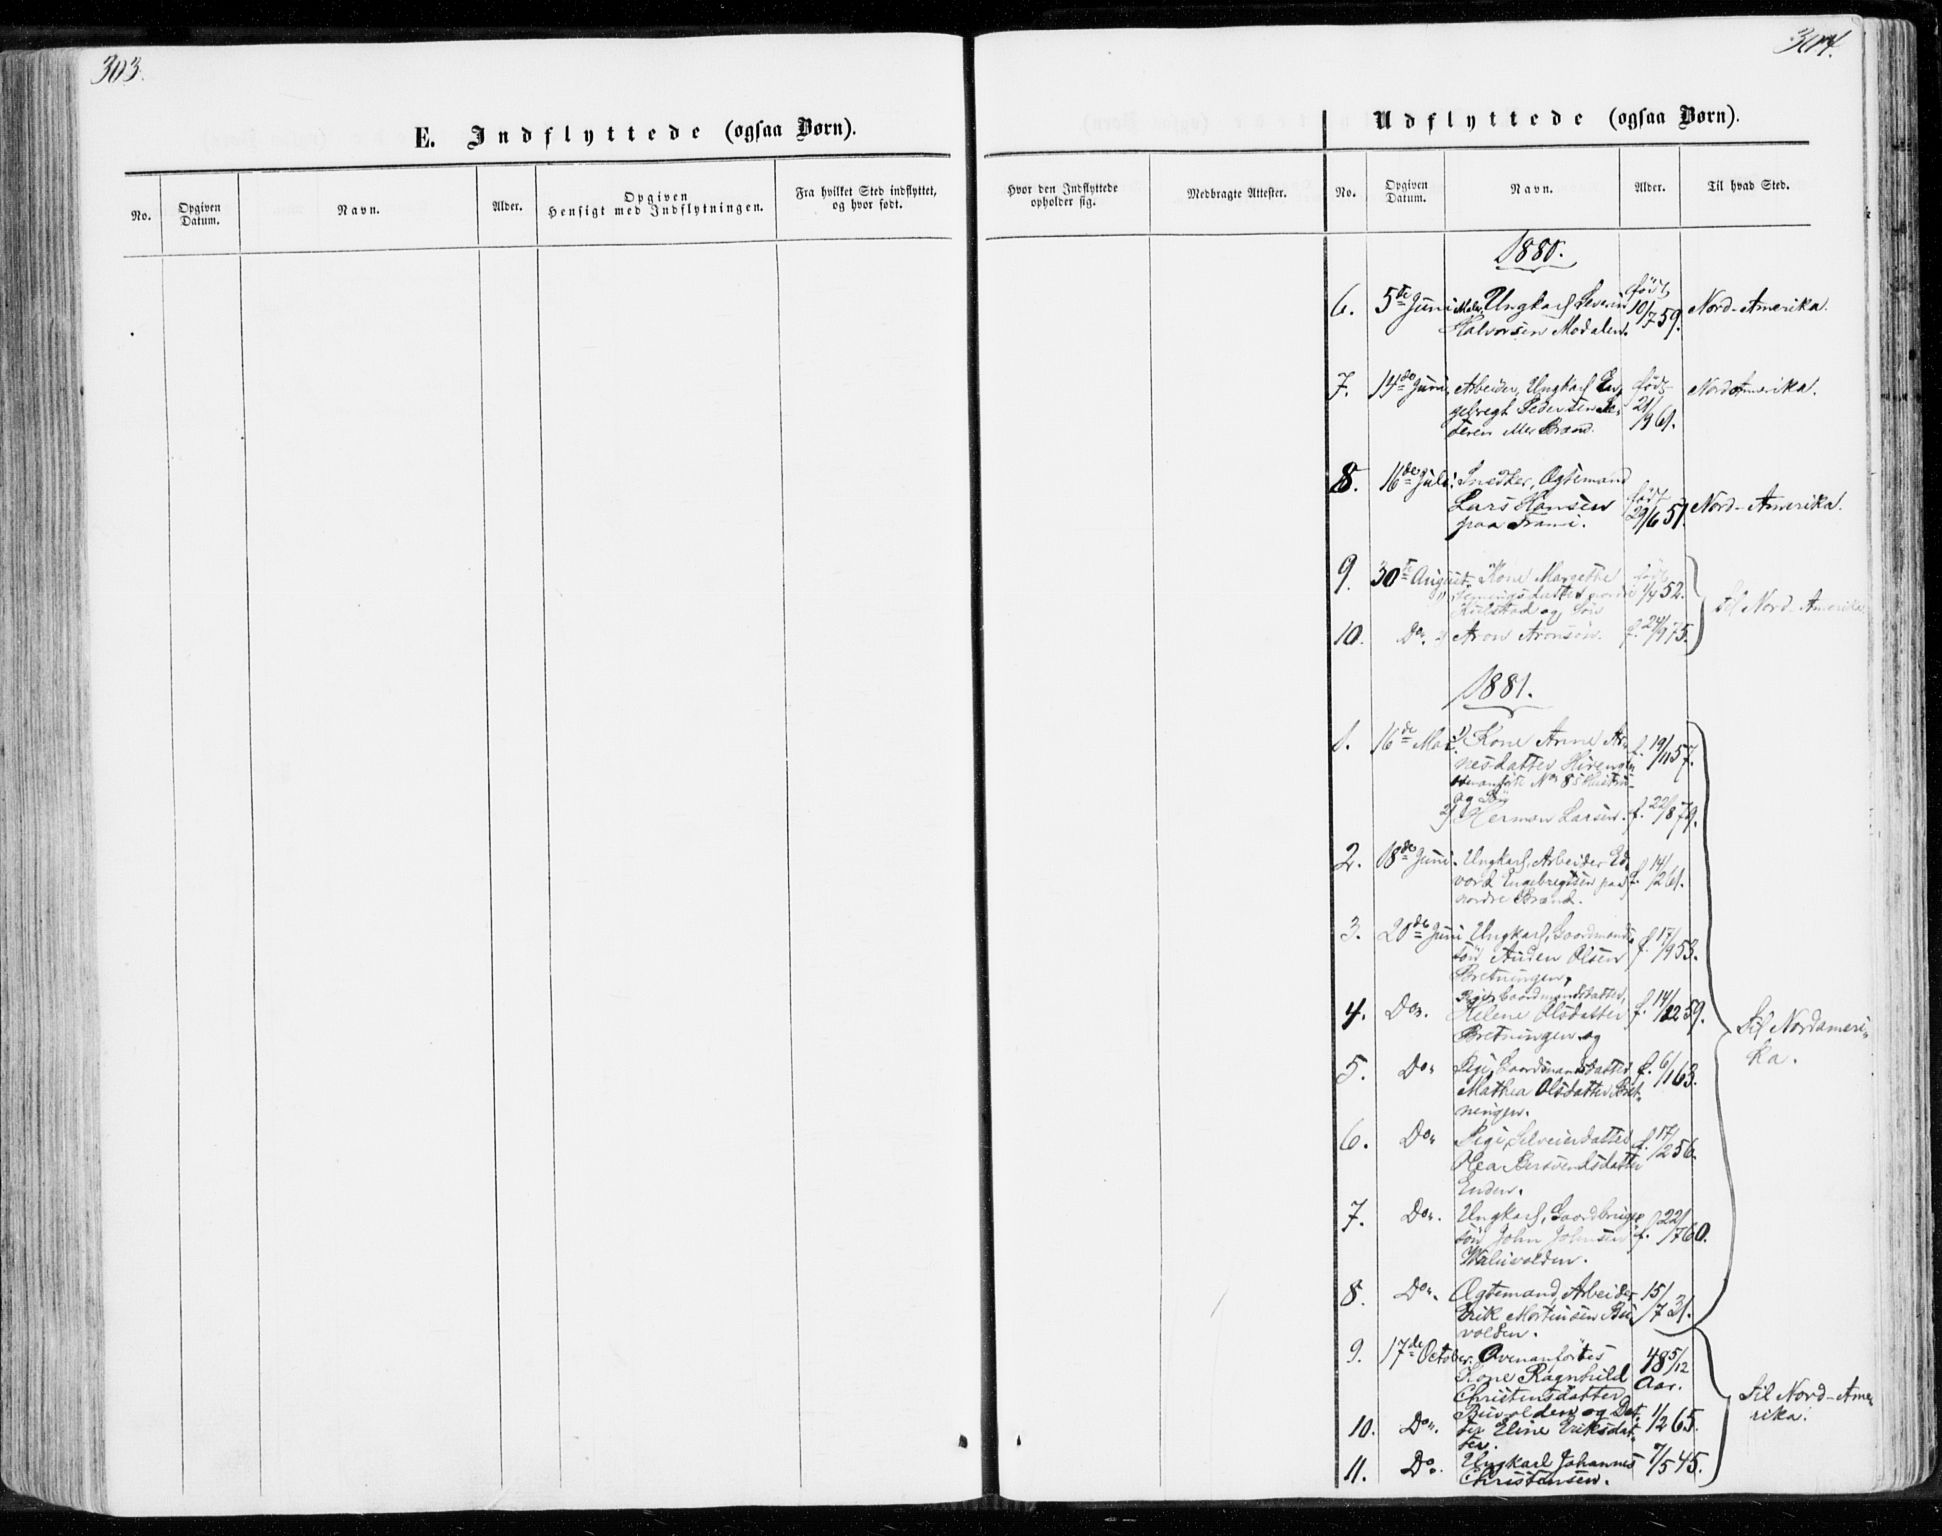 303.
304.
E. Indflyttede (ogsaa Børn).
Udflyttede (ogsaa Børn).
No.
Opgiven Datum.
Navn.
Alder.
Opgiven
Hensigt med Indflytningen.
Fra hvilket Sted indflyttet,
og hvor født.
Hvor den Indflyttede
opholder sig.
Medbragte Attester.
No.
Opgiven Datum.
Navn.
Alder.
Til hvad Sted.
1880.
6. 5te Juni Ungkarl Severin født 10/7 59. Nord-Amerika.
Halvorsen Modalen.
7. 14de Juni. Arbeider, Ungkarl En- født 21/9 61. Nord Amerika.
gebregt Pedersen
Brænd.
8. 16de Juli. Snedker, Ægtemand født 29/6 51. Nord-Amerika.
Lars Hansen
paa Trami.
9. 30te August. Kone Margethe født 1/4 52. til Nord-Amerika
og Søn
10. Do. 2) Aron Aronsen. f. 24/9 75.
1881.
1. 16de Mai. 1) Kone Anne Ar- f. 19/11 57.
nesdatter
ovenanførte No 8s Hustru
og Søn
2) Herman Larsen. f. 22/8 79.
2. 18de Juni. Ungkarl, Arbeider Ed- f. 14/2 61.
vard Engebregtsen paa
nordre Brænd.
3. 20de Juni Ungkarl, Gaardmands- f. 17/9 53.
søn Auden Olsen
Bretningen,
4. Do. Pige, Gaardmandsdatter, f. 14/12 59.
Helene Olsdatter
Bretningen og
5. Do. Pige, Gaardmandsdatter f. 6/1 63.
Mathea Olsdatter Bret-
ningen.
6. Do. Pige, Selveierdatter f. 17/2 56.
Olea Bersvendsdatter
Enden.
7. Do. Ungkarl, Gaardbruger- f. 22/7 60.
søn John Johnsen
8. Do. Ægtemand, Arbeider 15/7 31.
Erik Mortensen Bu-
volden.
Til Nordameri-
ka.
9. 17de October. Ovenanførtes 48 5/12
Kone Ragnhild Aar.
Christensdatter
Buvolden og Dat-
10. Do. ter Eline Eriksdat- 1/2 65.
ter.
11. Do. Ungkarl Johannes 7/5 45.
Christensen.
Til Nord-Ame-
rika.